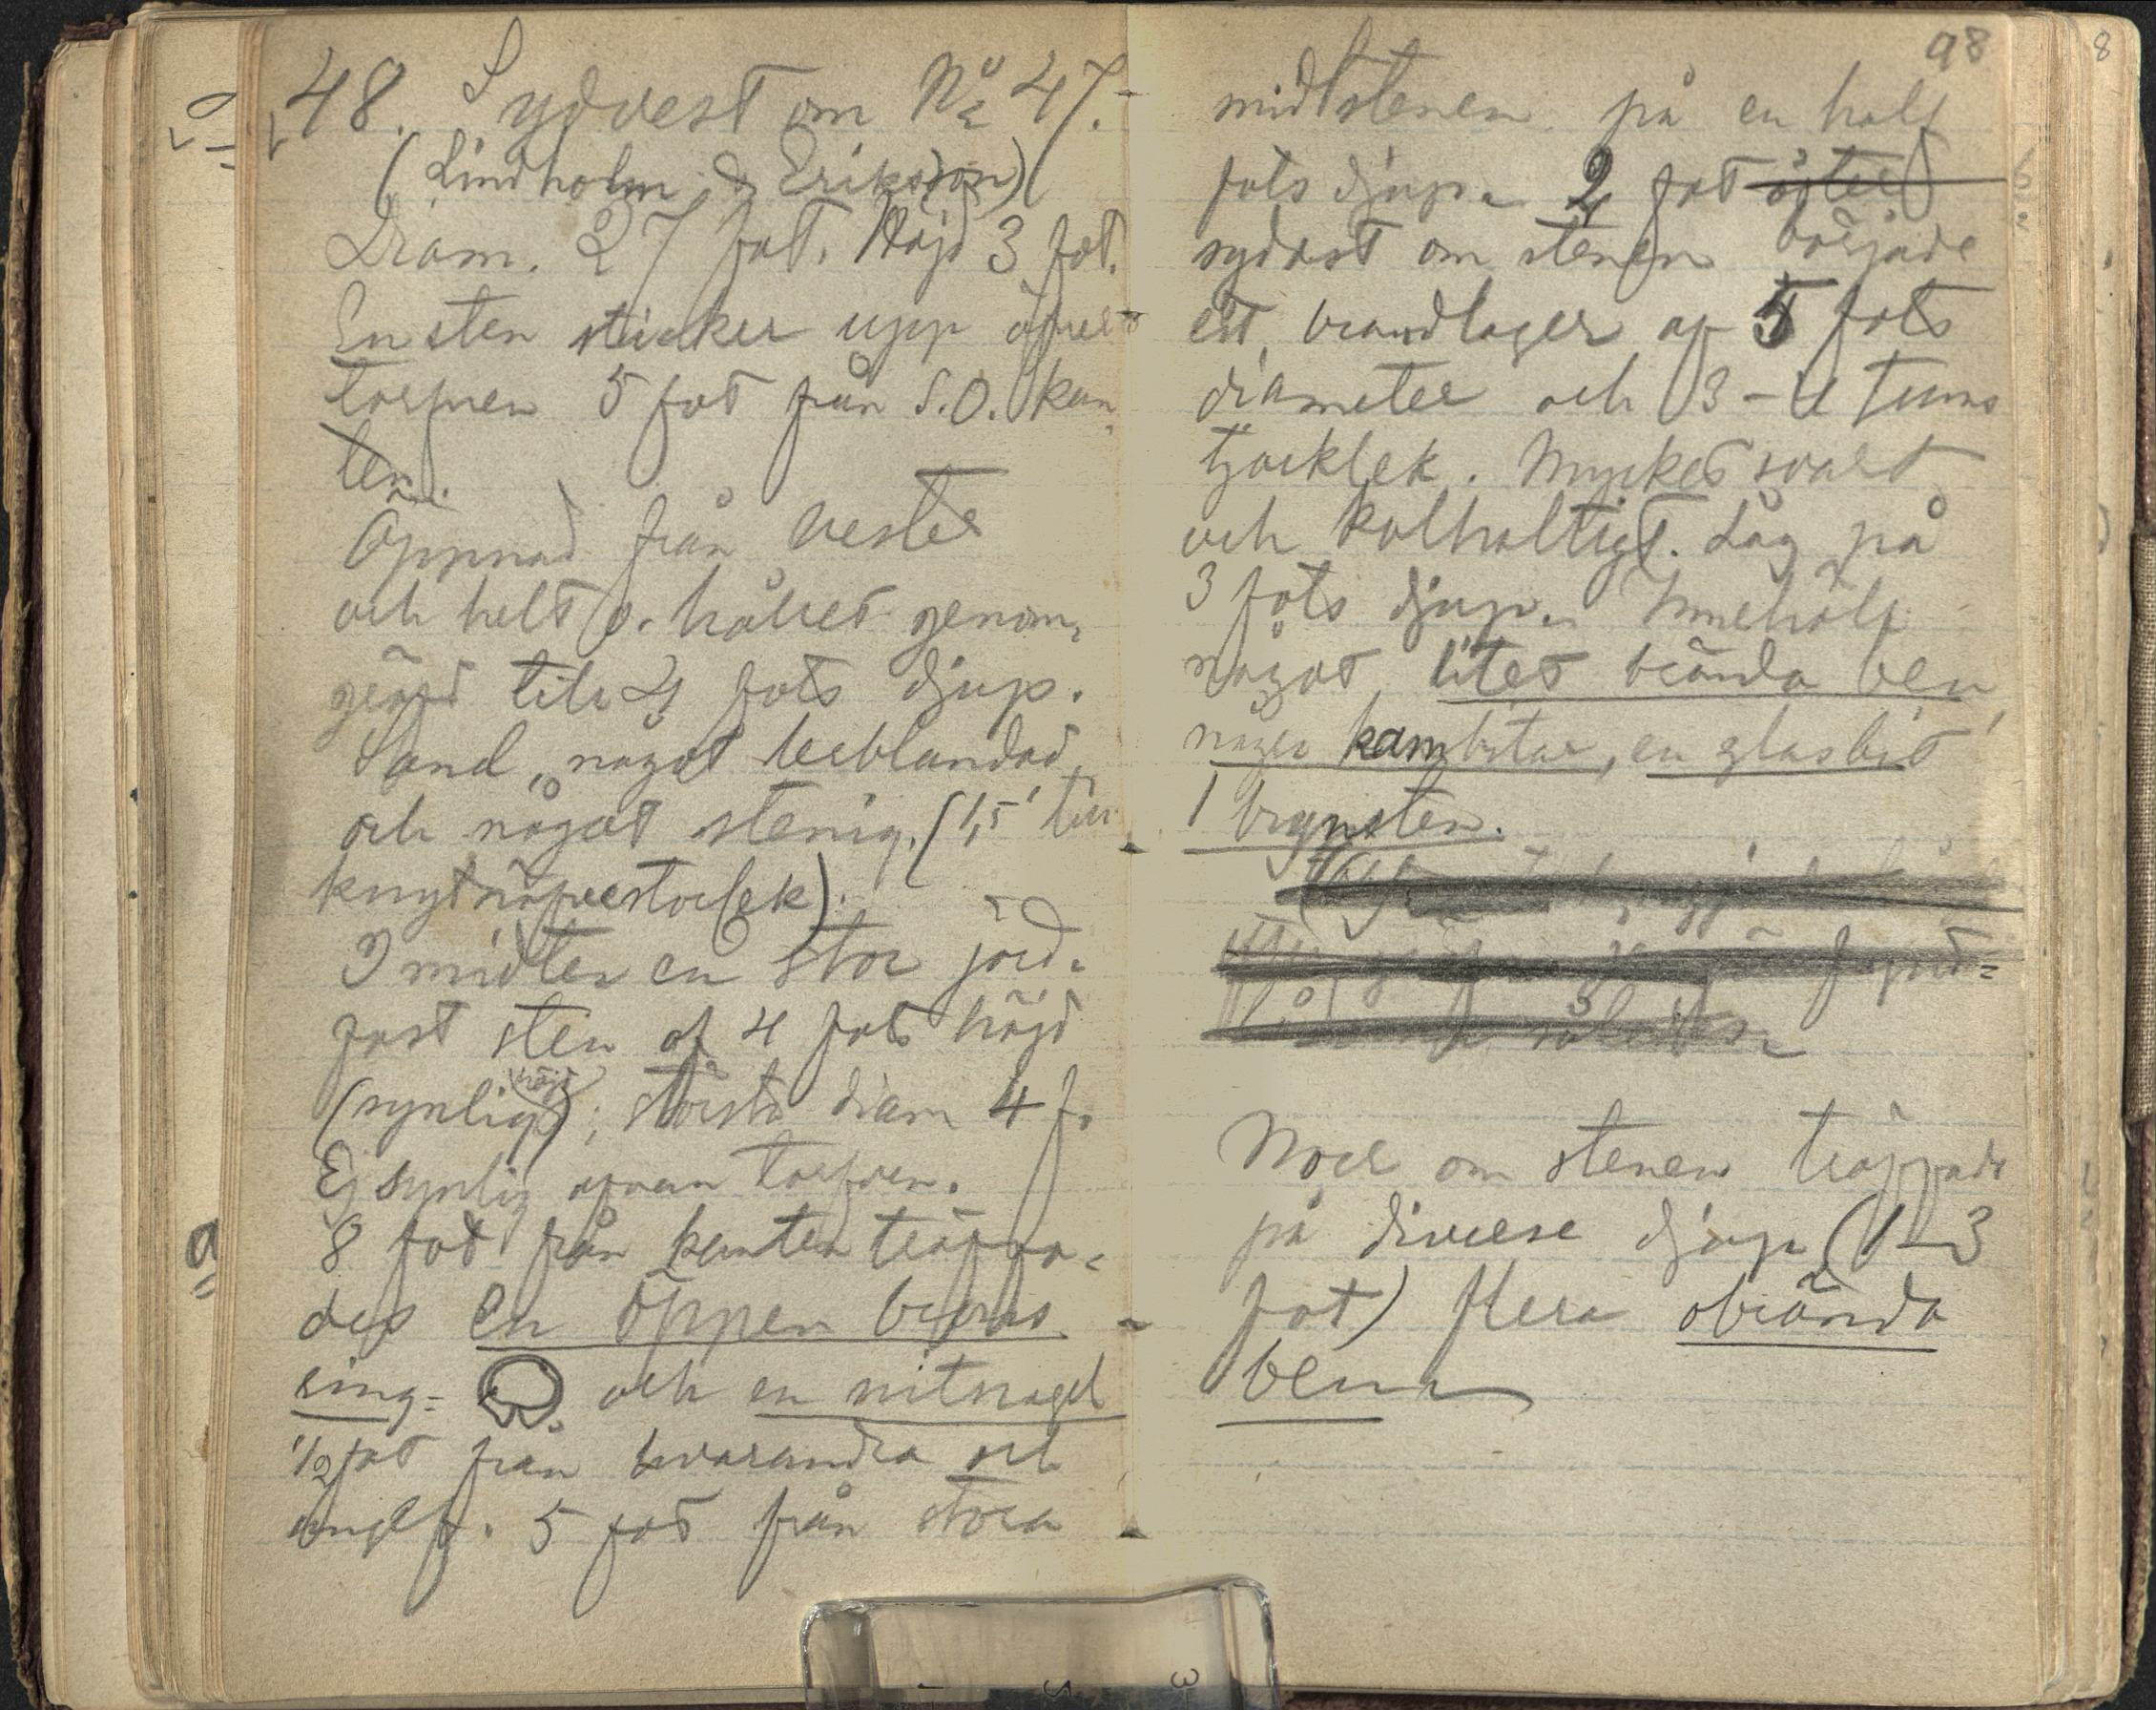 48. Sydvest om No 47.
(Lindholm & Eriksson)
Diam. 27 fot. Höjd 3 fot.
En sten sticker upp öfver
torfven 5 fot från S.O. kan-
ten.
Öppnad från vester
och helt o. hållet genom-
gräfd till 4 fots djup.
Sand, något lerblandad
och något stenig. (1,5' till
knytnäfvestorlek).
I midten en stor jord-
fast sten af 4 fots höjd
(synlig höjd); största diam 4 f.
Ej synlig ofvan torfven.
8 fot från kanten träffa-
des en öppen brons
ring- och en nitnagel
1/2 fot från hvarandra och
ungef. 5 fot från stora
98
midtstenen på en half
fots djup. 2 fot öster
sydvest om stenen började
ett brandlager af 5 fots
diameter och 3-4 tums
tjocklek. Mycket svart
och kolhaltigt. Låg på
3 fots djup. Innehöll
något litet brända ben,
några kambitar, en glasbit
1 brynsten.
Norr om stenen träffades
på diverse djup (1-3
fot) flera obrända
ben